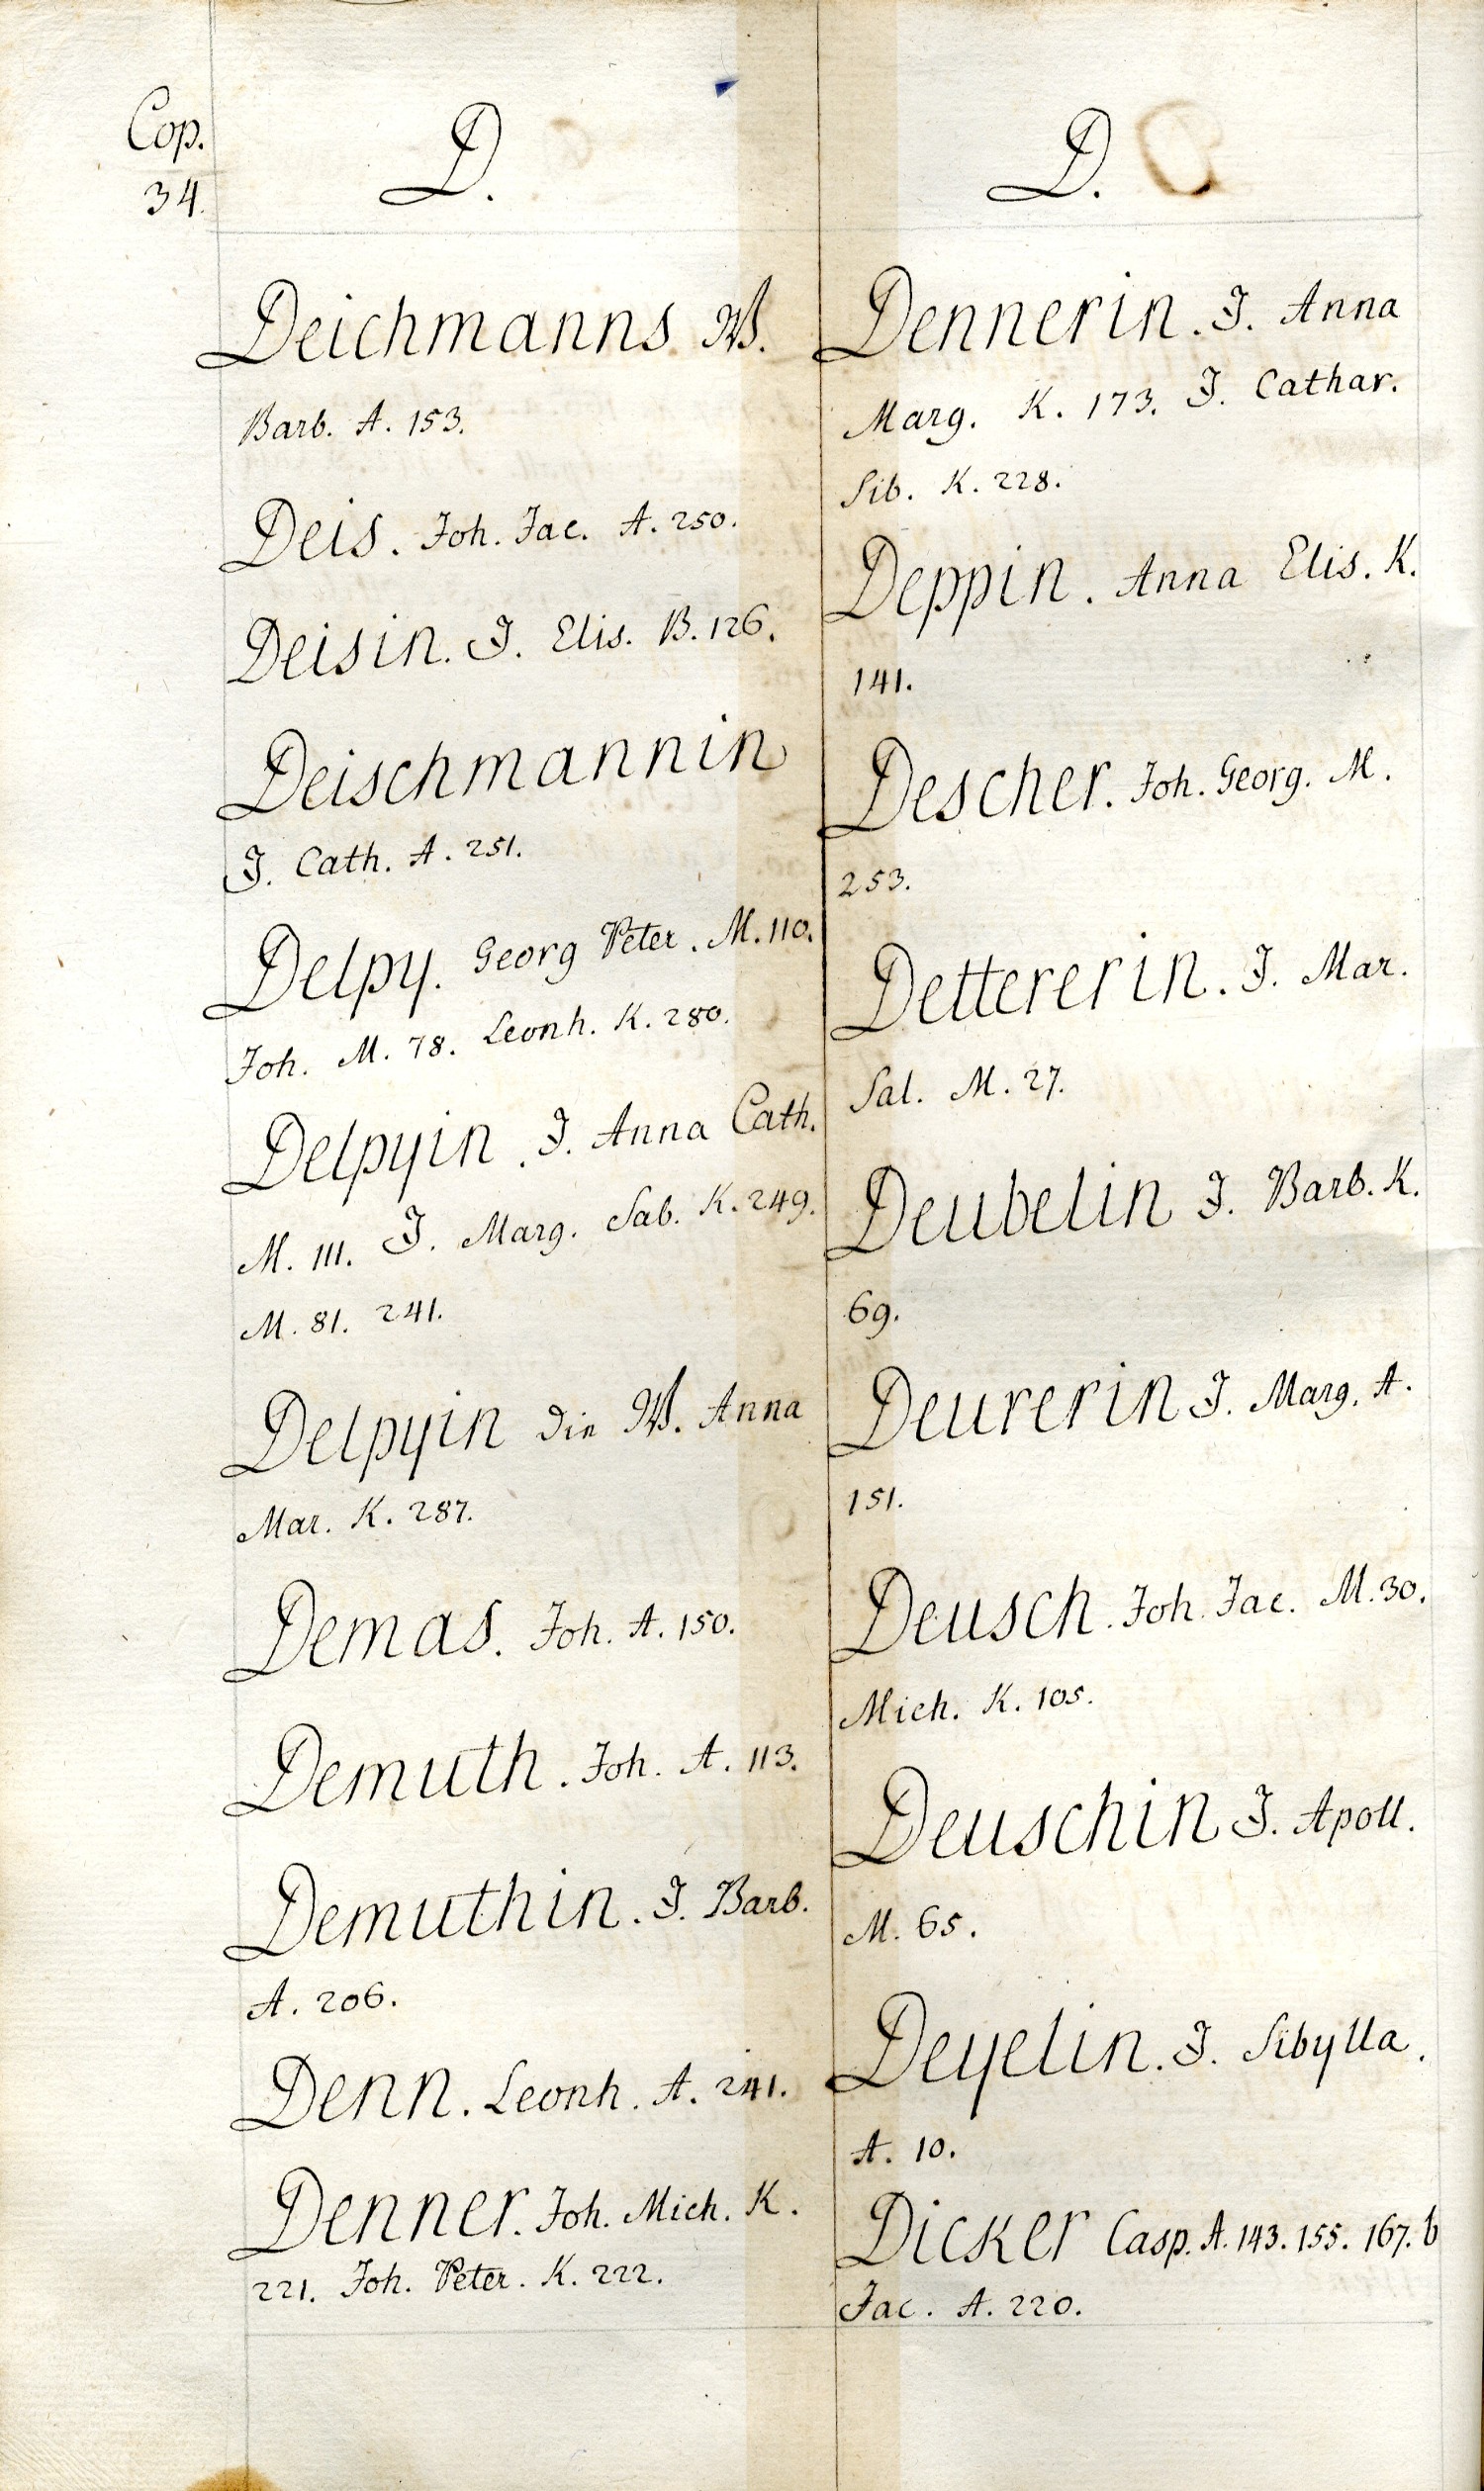 Cop.
34.
D.
Deichmanns W.
Barb. A. 153.
Deis. Joh. Jac. A. 250.
Deisin. J. Elis. B. 126.
Deischmannin
J. Cath. A. 251.
Delpy. Georg Peter. M. 110.
Joh. M. 78. Leonh. K. 280.
Delpyin. J. Anna Cath.
M. 111. J. Marg. Sab. K. 249.
M. 81. 241.
Delpyin die W. Anna
Mar. K. 287.
Demas. Joh. A. 150.
Demuth. Joh. A. 113.
Demuthin. J. Barb.
A. 206.
Denn. Leonh. A. 241.
Denner. Joh. Mich. K.
221. Joh. Peter. K. 222.
D.
Dennerin. J. Anna
Marg. K. 173. J. Cathar.
Sib. K. 228.
Deppin. Anna Elis. K.
141.
Descher. Joh. Georg. M.
253.
Dettererin. J. Mar.
Sal. M. 27.
Deubelin J. Barb. K.
69.
Deurerin J. Marg. A.
151.
Deusch. Joh. Jac. M. 30.
Mich. K. 105.
Deuschin J. Apoll.
M. 65.
Deyelin. J. Sibylla.
A. 10.
Dicker Casp. A. 143. 155. 167. b
Jac. A. 220.